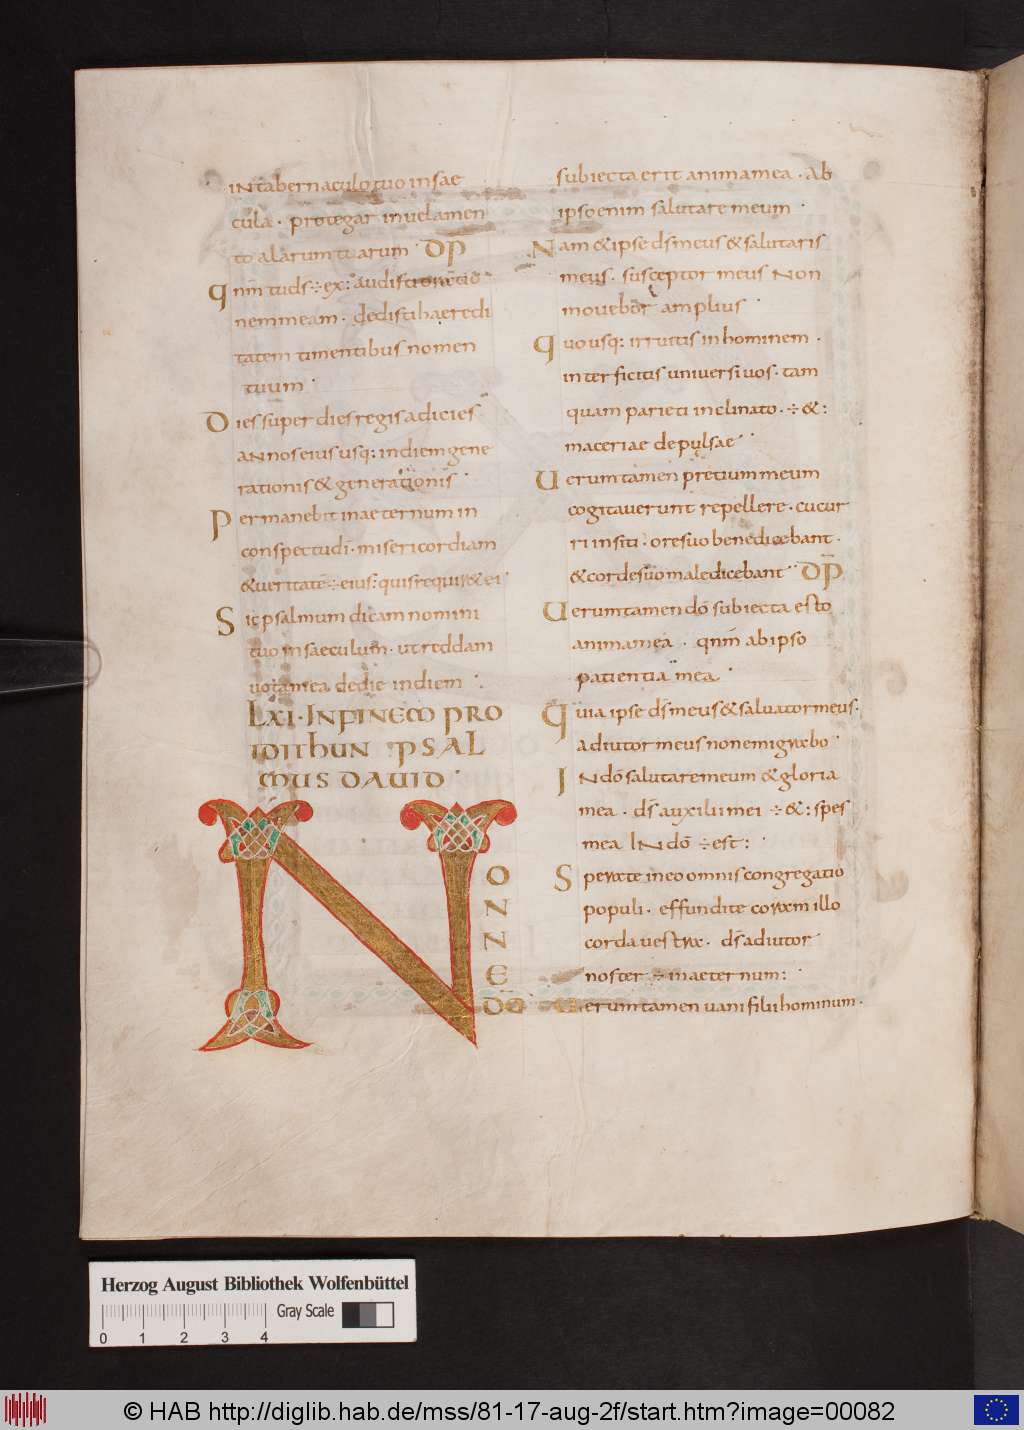 INtabernaculo tuo in sae
cula · protegar in uelamen
to alarum tuarum · DP̄
Qnm̄ tu ds̄ ÷ ex: audisti orationē
nem meam · dedisti haeredi
tatem timentibus nomen
tuum ·
Dies super dies regis adicies
aNnos eius usq: in diem gene
rationis & generationis ·
Permanebit in aeternum in
conspectu dī · misericordiam
& ueritatē ÷ eius: quis requir& ei
Sic psalmum dicam nomini
tuo in saeculum · ut reddam
uota mea de die in diem ·
LXI · INFINEM PRO
IDITHUN PSAL
MUS DAUID ·
N
O
N
N
E
DŌ
subiecta erit anima mea · Ab
ipso enim salutare meum ·
Nam & ipse ds̄ meus & salutaris
meus · susceptor meus Non
mouebor amplius ·
Quousq: irruitis in hominem ·
interficitis uniuersi uos · tam
quam parieti inclinato · ÷ &:
maceriae depulsae ·
Uerumtamen pretium meum
cogitauerunt repellere · cucur
ri in siti · ore suo benedicebant ·
& corde suo maledicebant DP̄
Uerumtamen dō subiecta esto
anima mea · qnm̄ ab ipso
patientia mea ·
Quia ipse ds̄ meus & saluator meus ·
adiutor meus non emigrabo ·
IN dō salutare meum & gloria
mea · ds̄ auxilii mei ÷ &: spes
mea IN dō ÷ est: ·
Sperate in eo omnis congregatio
populi · effundite coram illo
corda uestra · ds̄ adiutor
noster ÷ in aeternum:
Uerumtamen uani filii hominum ·
Herzog August Bibliothek Wolfenbüttel
Gray Scale
0 1 2 3 4
© HAB http://diglib.hab.de/mss/81-17-aug-2f/start.htm?image=00082